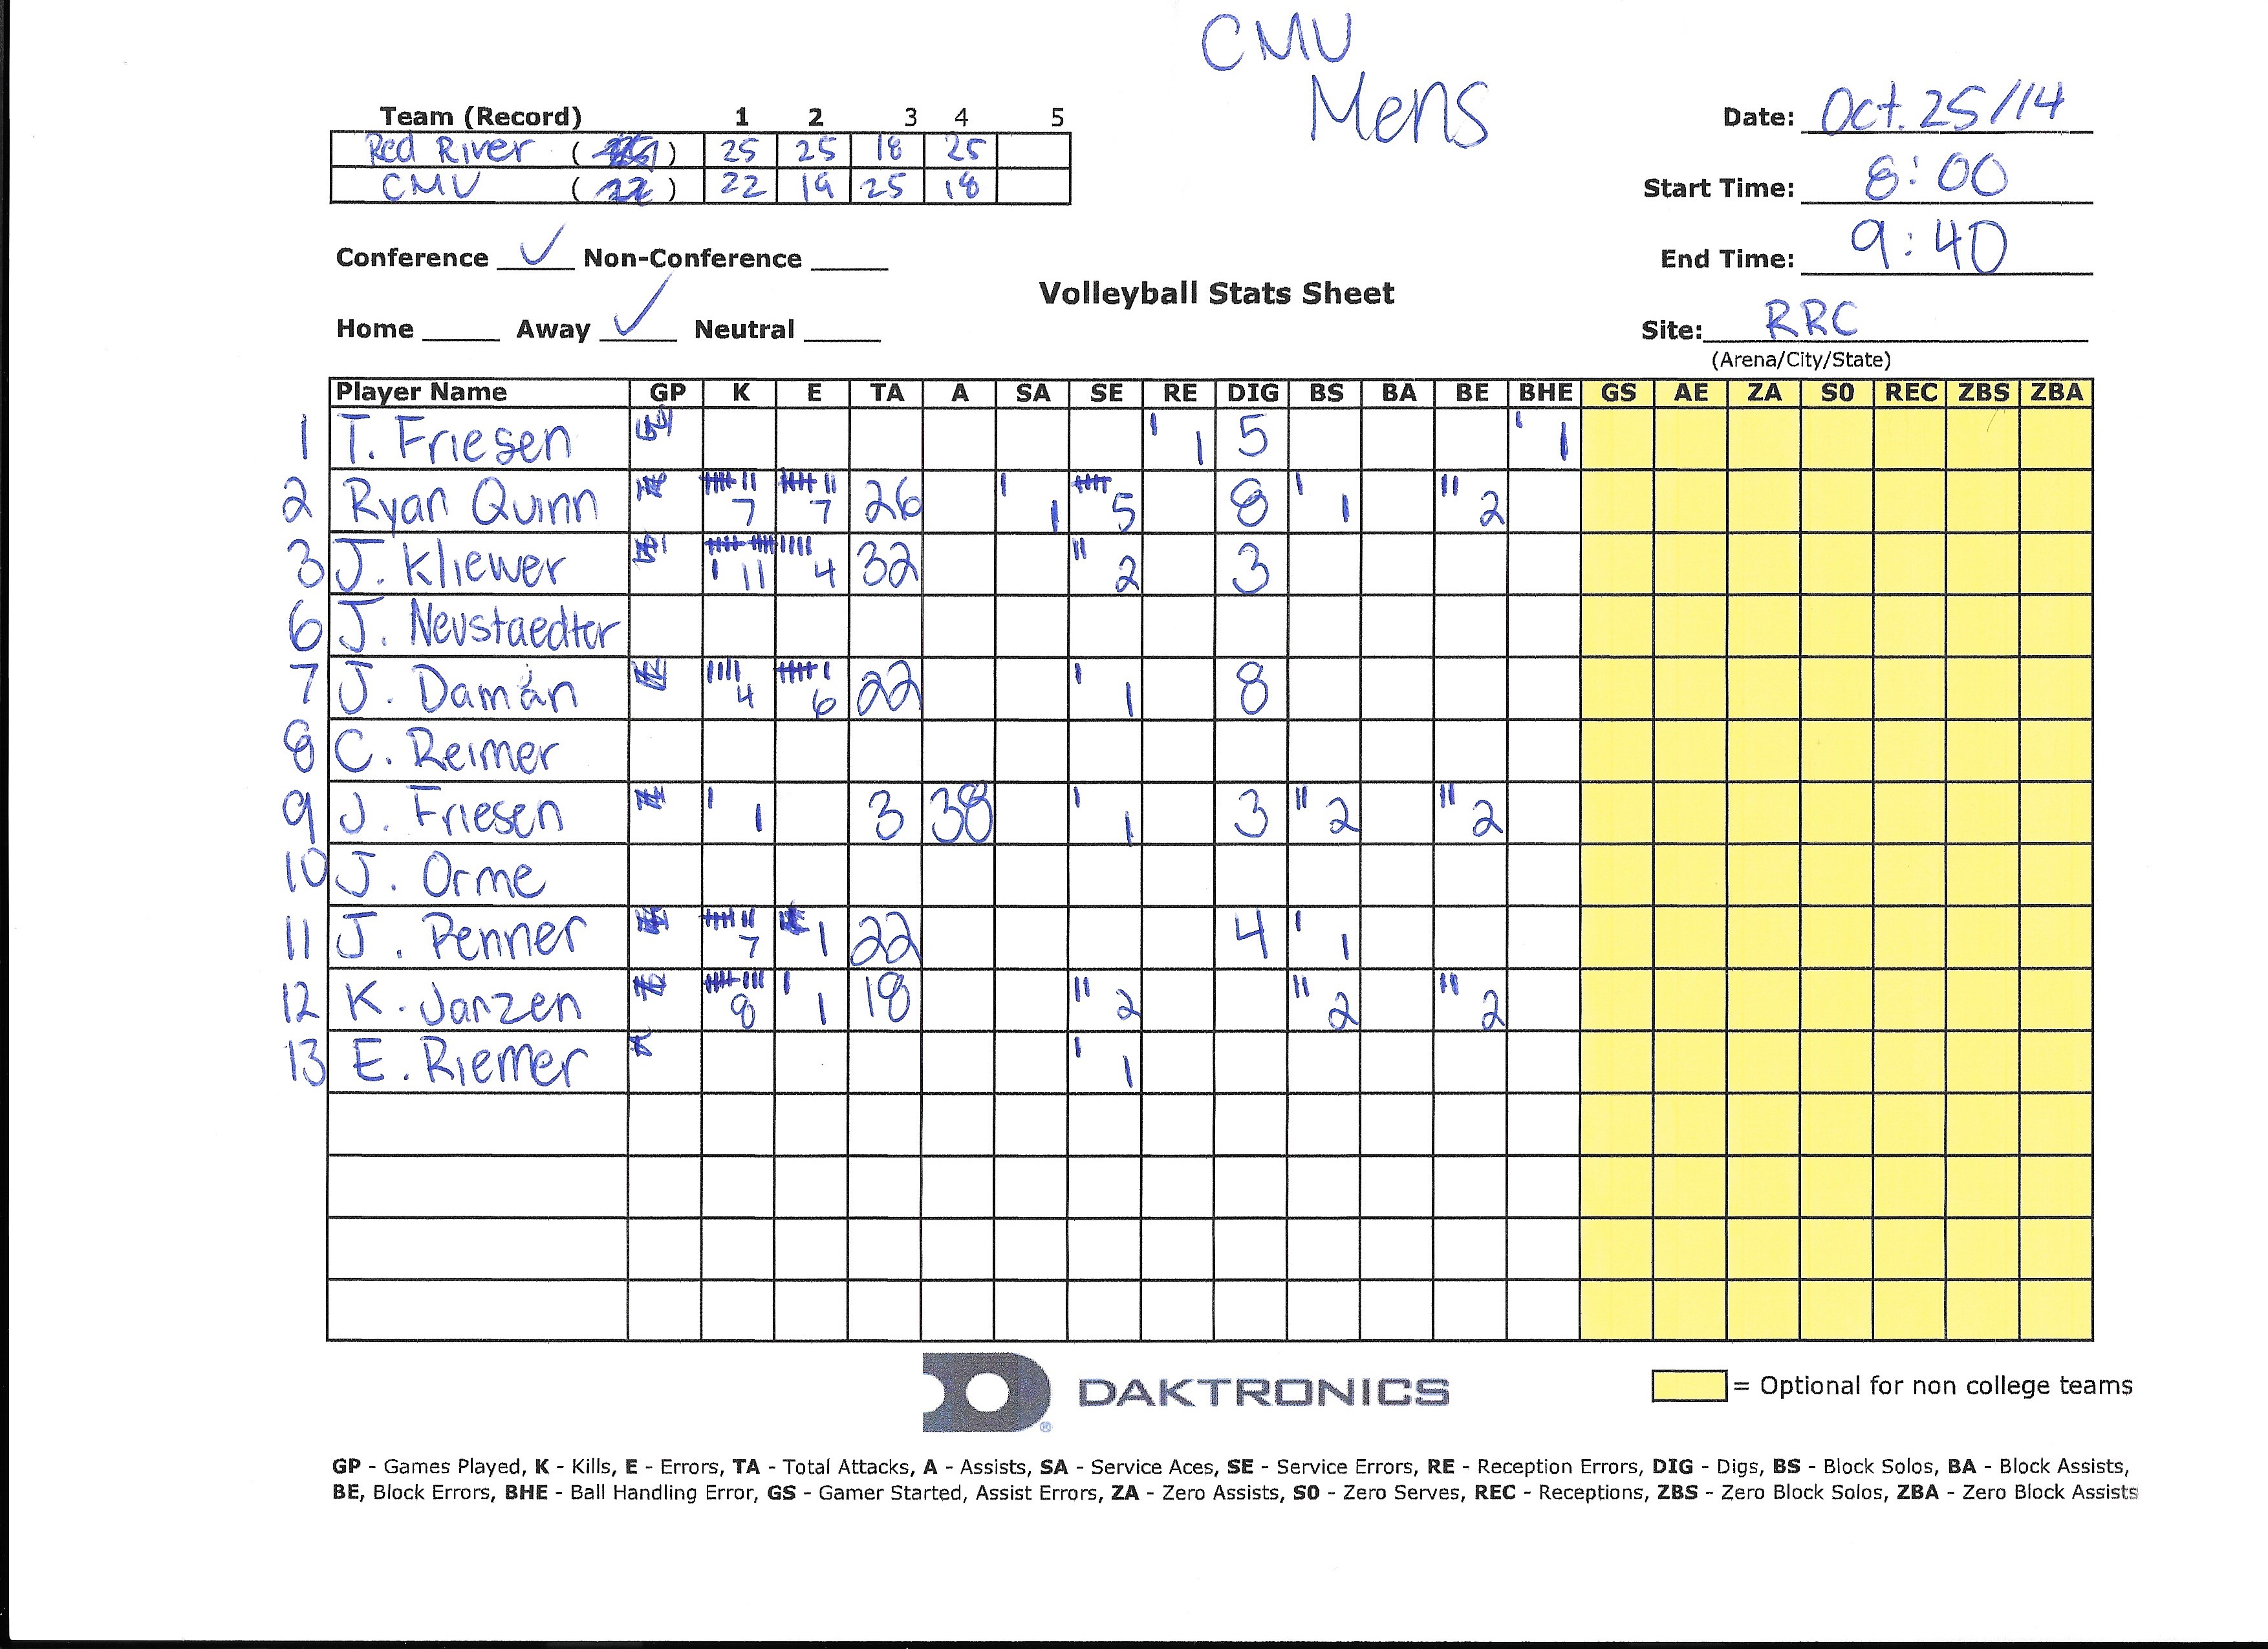 CMU
Mens
Team (Record) 1 2 3 4 5
Red River ( ) 25 25 18 25
CMU ( ) 22 19 25 18
Date: Oct. 25/14
Start Time: 8:00
End Time: 9:40
Conference ✓ Non-Conference
Volleyball Stats Sheet
Home Away ✓ Neutral
Site: RRC
(Arena/City/State)
Player Name GP K E TA A SA SE RE DIG BS BA BE BHE GS AE ZA S0 REC ZBS ZBA
1 T. Friesen 1 5 1
2 Ryan Quinn 7 7 26 1 5 8 1 2
3 J. Kliewer 11 4 32 2 3
6 J. Neustaedter
7 J. Daman 4 6 22 1 8
8 C. Reimer
9 J. Friesen 1 3 38 1 3 2 2
10 J. Orme
11 J. Penner 7 1 22 4 1
12 K. Janzen 8 1 18 2 2 2
13 E. Riemer 1
DAKTRONICS
= Optional for non college teams
GP - Games Played, K - Kills, E - Errors, TA - Total Attacks, A - Assists, SA - Service Aces, SE - Service Errors, RE - Reception Errors, DIG - Digs, BS - Block Solos, BA - Block Assists,
BE, Block Errors, BHE - Ball Handling Error, GS - Gamer Started, Assist Errors, ZA - Zero Assists, S0 - Zero Serves, REC - Receptions, ZBS - Zero Block Solos, ZBA - Zero Block Assists